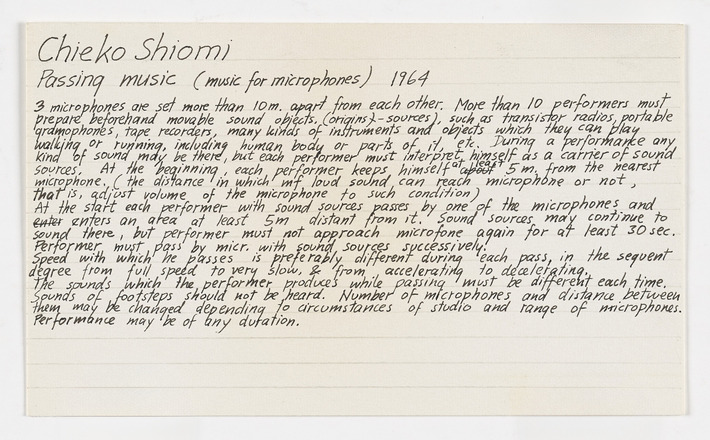 Chieko Shiomi
Passing music (music for microphones) 1964
3 microphones are set more than 10 m. apart from each other. More than 10 performers must
prepare beforehand movable sound objects. (origins) - sources), such as transistor radios, portable
gramophones, tape recorders, many kinds of instruments and objects which they can play
walking or running, including human body or parts of it, etc. During a performance any
kind of sound may be there, but each performer must interpret himself as a carrier of sound
sources. At the beginning, each performer keeps himself about at least 5 m. from the nearest
microphone. (the distance in which mf loud sound can reach microphone or not,
that is, adjust volume of the microphone to such condition)
At the start each performer with sound sources passes by one of the microphones and
enter enters an area at least 5m distant from it. Sound sources may continue to
sound there, but performer must not approach microfone again for at least 30 sec.
Performer must pass by micr. with sound sources successively.
Speed with which he passes is preferably different during each pass, in the sequent
degree from full speed to very slow, & from accelerating to decelerating.
The sounds which the performer produces while passing must be different each time.
Sounds of footsteps should not be heard. Number of microphones and distance between
them may be changed depending to circumstances of studio and range of microphones.
Performance may be of any duration.